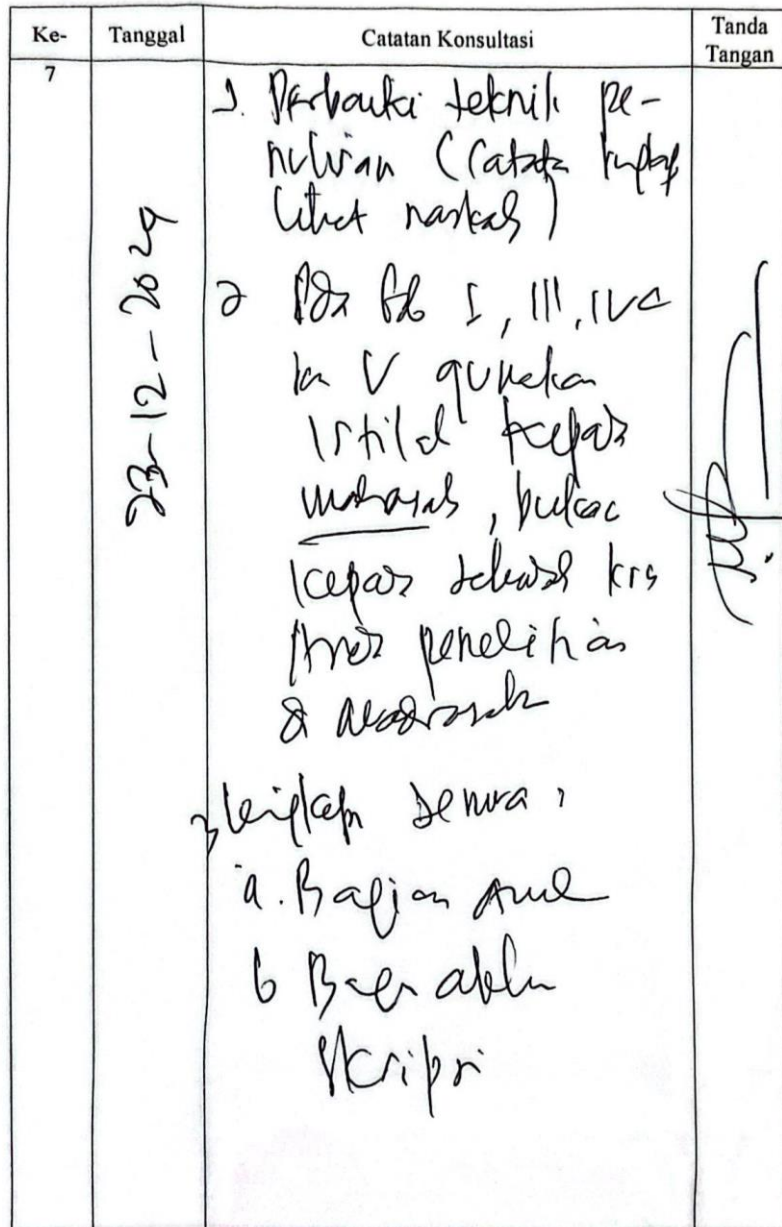 Ke-
Tanggal
Catatan Konsultasi
Tanda
Tangan
7
23-12-2024
1. Perbaiki teknik pe-
nulisan (Catatan lengkap
lihat naskah)
2 Pada Bab I, III, IV
dan V gunakan
istilah kepala
madrasah, bukan
kepala sekolah krn
penelitian
di madrasah
3 lengkapi semua:
a. Bagian awal
b Bagian akhir
Skripsi